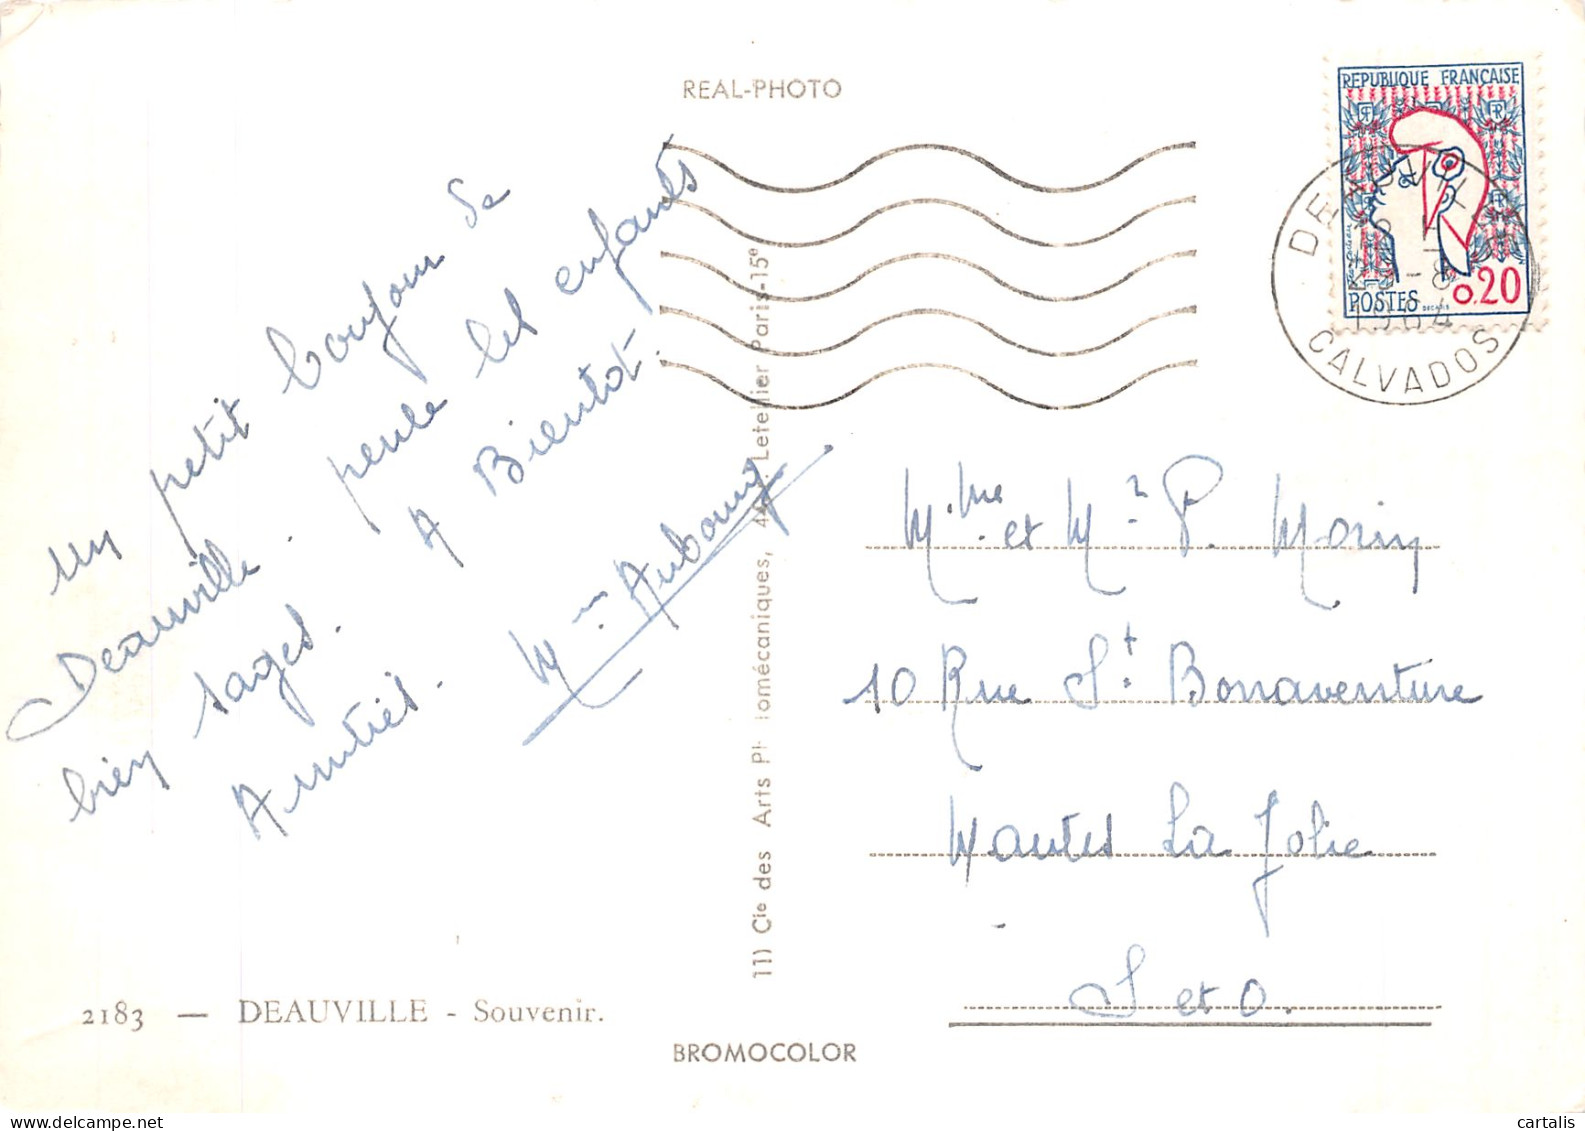 REAL-PHOTO
REPUBLIQUE FRANÇAISE
POSTES 0,20
DEAUVILLE
1964
CALVADOS
un petit bonjour de
Deauville. les enfants
bien sages. A Bientot.
Amitiés. Mme Aubourg
Mme et Mr P. Morin
10 Rue St Bonaventure
Mantes La Jolie
S et O.
11) Cie des Arts Ph lomécaniques, 44, r. Letellier Paris-15e
2183 — DEAUVILLE - Souvenir.
BROMOCOLOR
cartalis